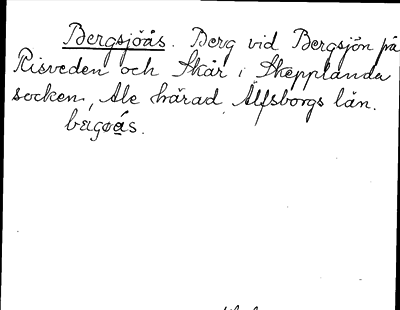 Bergsjöås. Berg vid Bergsjön på
Risveden och Skår i Skepplanda
socken, Ale härad, Älfsborgs län.
bergøás.